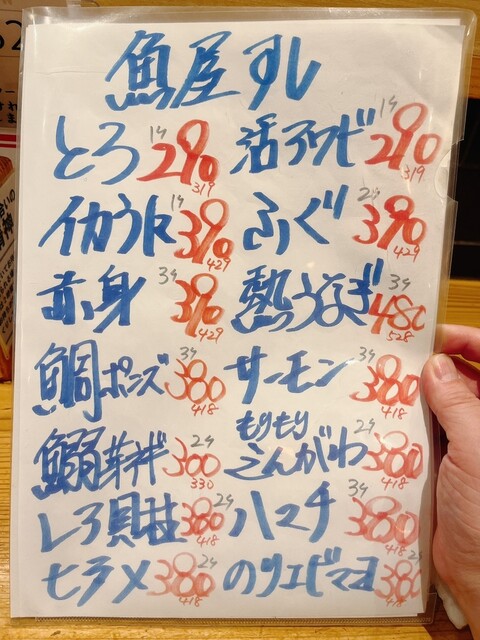 魚屋すし
とろ 1ケ 290 319
活アワビ 1ケ 290 319
イカうに 1ケ 390 429
ふぐ 2ケ 390 429
赤身 3ケ 390 429
熱うなぎ 3ケ 480 528
鯛ポンズ 3ケ 380 418
サーモン 3ケ 380 418
鰯芽ネギ 2ケ 300 330
もりもり
えんがわ 2ケ 380 418
しろ貝柱 2ケ 380 418
ハマチ 3ケ 380 418
ヒラメ 2ケ 380 418
のりエビマヨ 2ケ 380 418